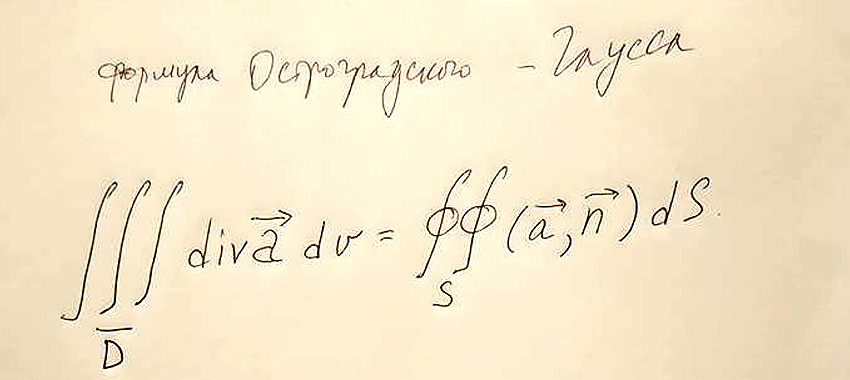 формула Остроградского – Гаусса
∭_D̅ div a⃗ dv = ∯_S (a⃗, n⃗) dS.